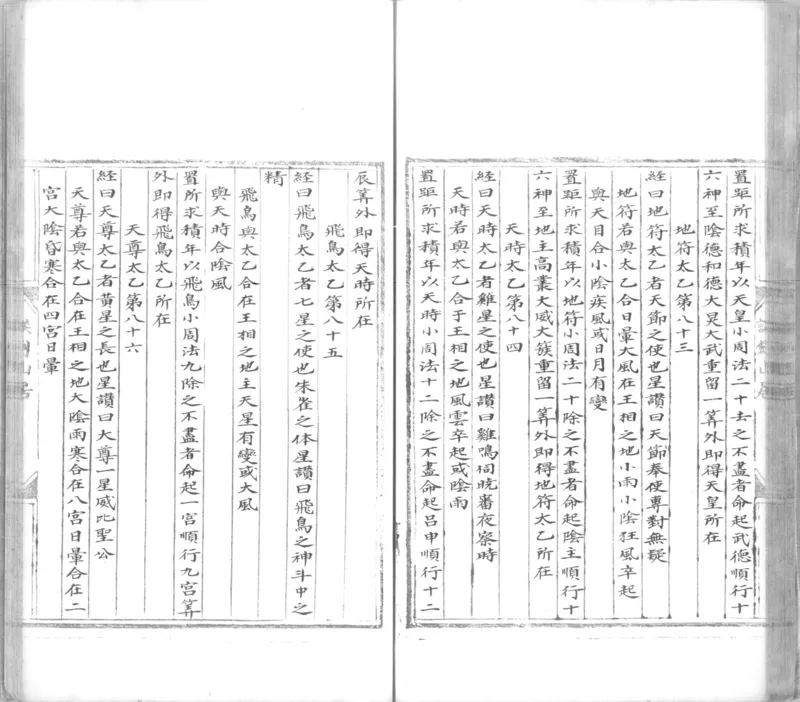 置距所求積年以天皇小周法二十去之不盡者命起武德順行十
六神至陰德和德大炅大武重留一筭外即得天皇所在
地符太乙第八十三
経曰地符太乙者天節之使也星讚曰天節奉使專對無疑
地符若與太乙合日暈大風在王相之地小雨小陰狂風卒起
與天目合小陰疾風或日月有變
置距所求積年以地符小周法二十除之不盡者命起陰主順行十
六神至地主高叢大威大簇重留一筭外即得地符太乙所在
天時太乙第八十四
経曰天時太乙者雞星之使也星讚曰雞鳴伺晓審夜察時
天時若與太乙合于王相之地風雲卒起或陰雨
置距所求積年以天時小周法十二除之不盡命起呂申順行十二
辰筭外即得天時所在
飛鳥太乙第八十五
経曰飛鳥太乙者七星之使也朱雀之体星讚曰飛鳥之神斗中之
精
飛鳥與太乙合在王相之地主天星有變或大風
與天時合陰風
置所求積年以飛鳥小周法九除之不盡者命起一宮順行九宮筭
外即得飛鳥太乙所在
天尊太乙第八十六
経曰天尊太乙者黄星之長也星讚曰大尊一星威比聖公
天尊若與太乙合在王相之地大陰雨寒合在八宮日暈合在二
宮大陰昏寒合在四宮日暈